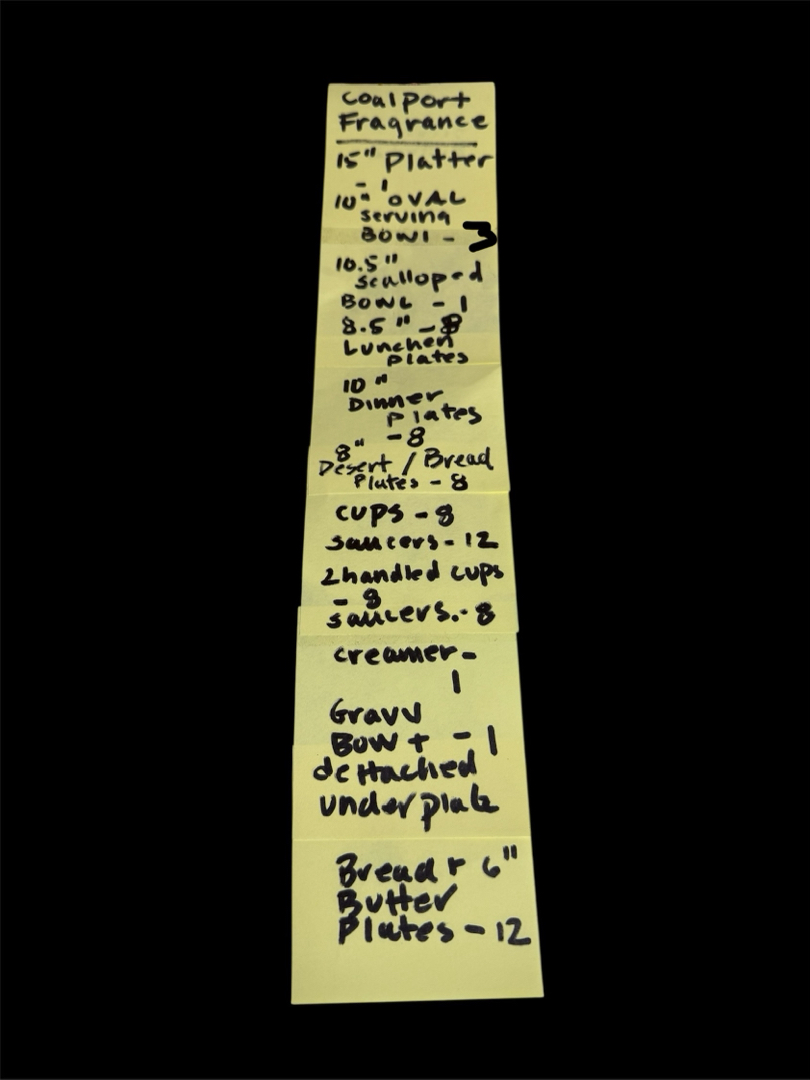 Coalport
Fragrance
15" Platter
- 1
10" OVAL
serving
BOWl - 3
10.5"
scalloped
BOWL - 1
8.5" - 8
Lunchen
plates
10"
Dinner
Plates
- 8
8"
Desert / Bread
Plates - 8
cups - 8
saucers - 12
2handled cups
- 8
saucers. - 8
creamer -
1
Gravv
Bow + - 1
dettached
underplate
Bread + 6"
Butter
Plates - 12